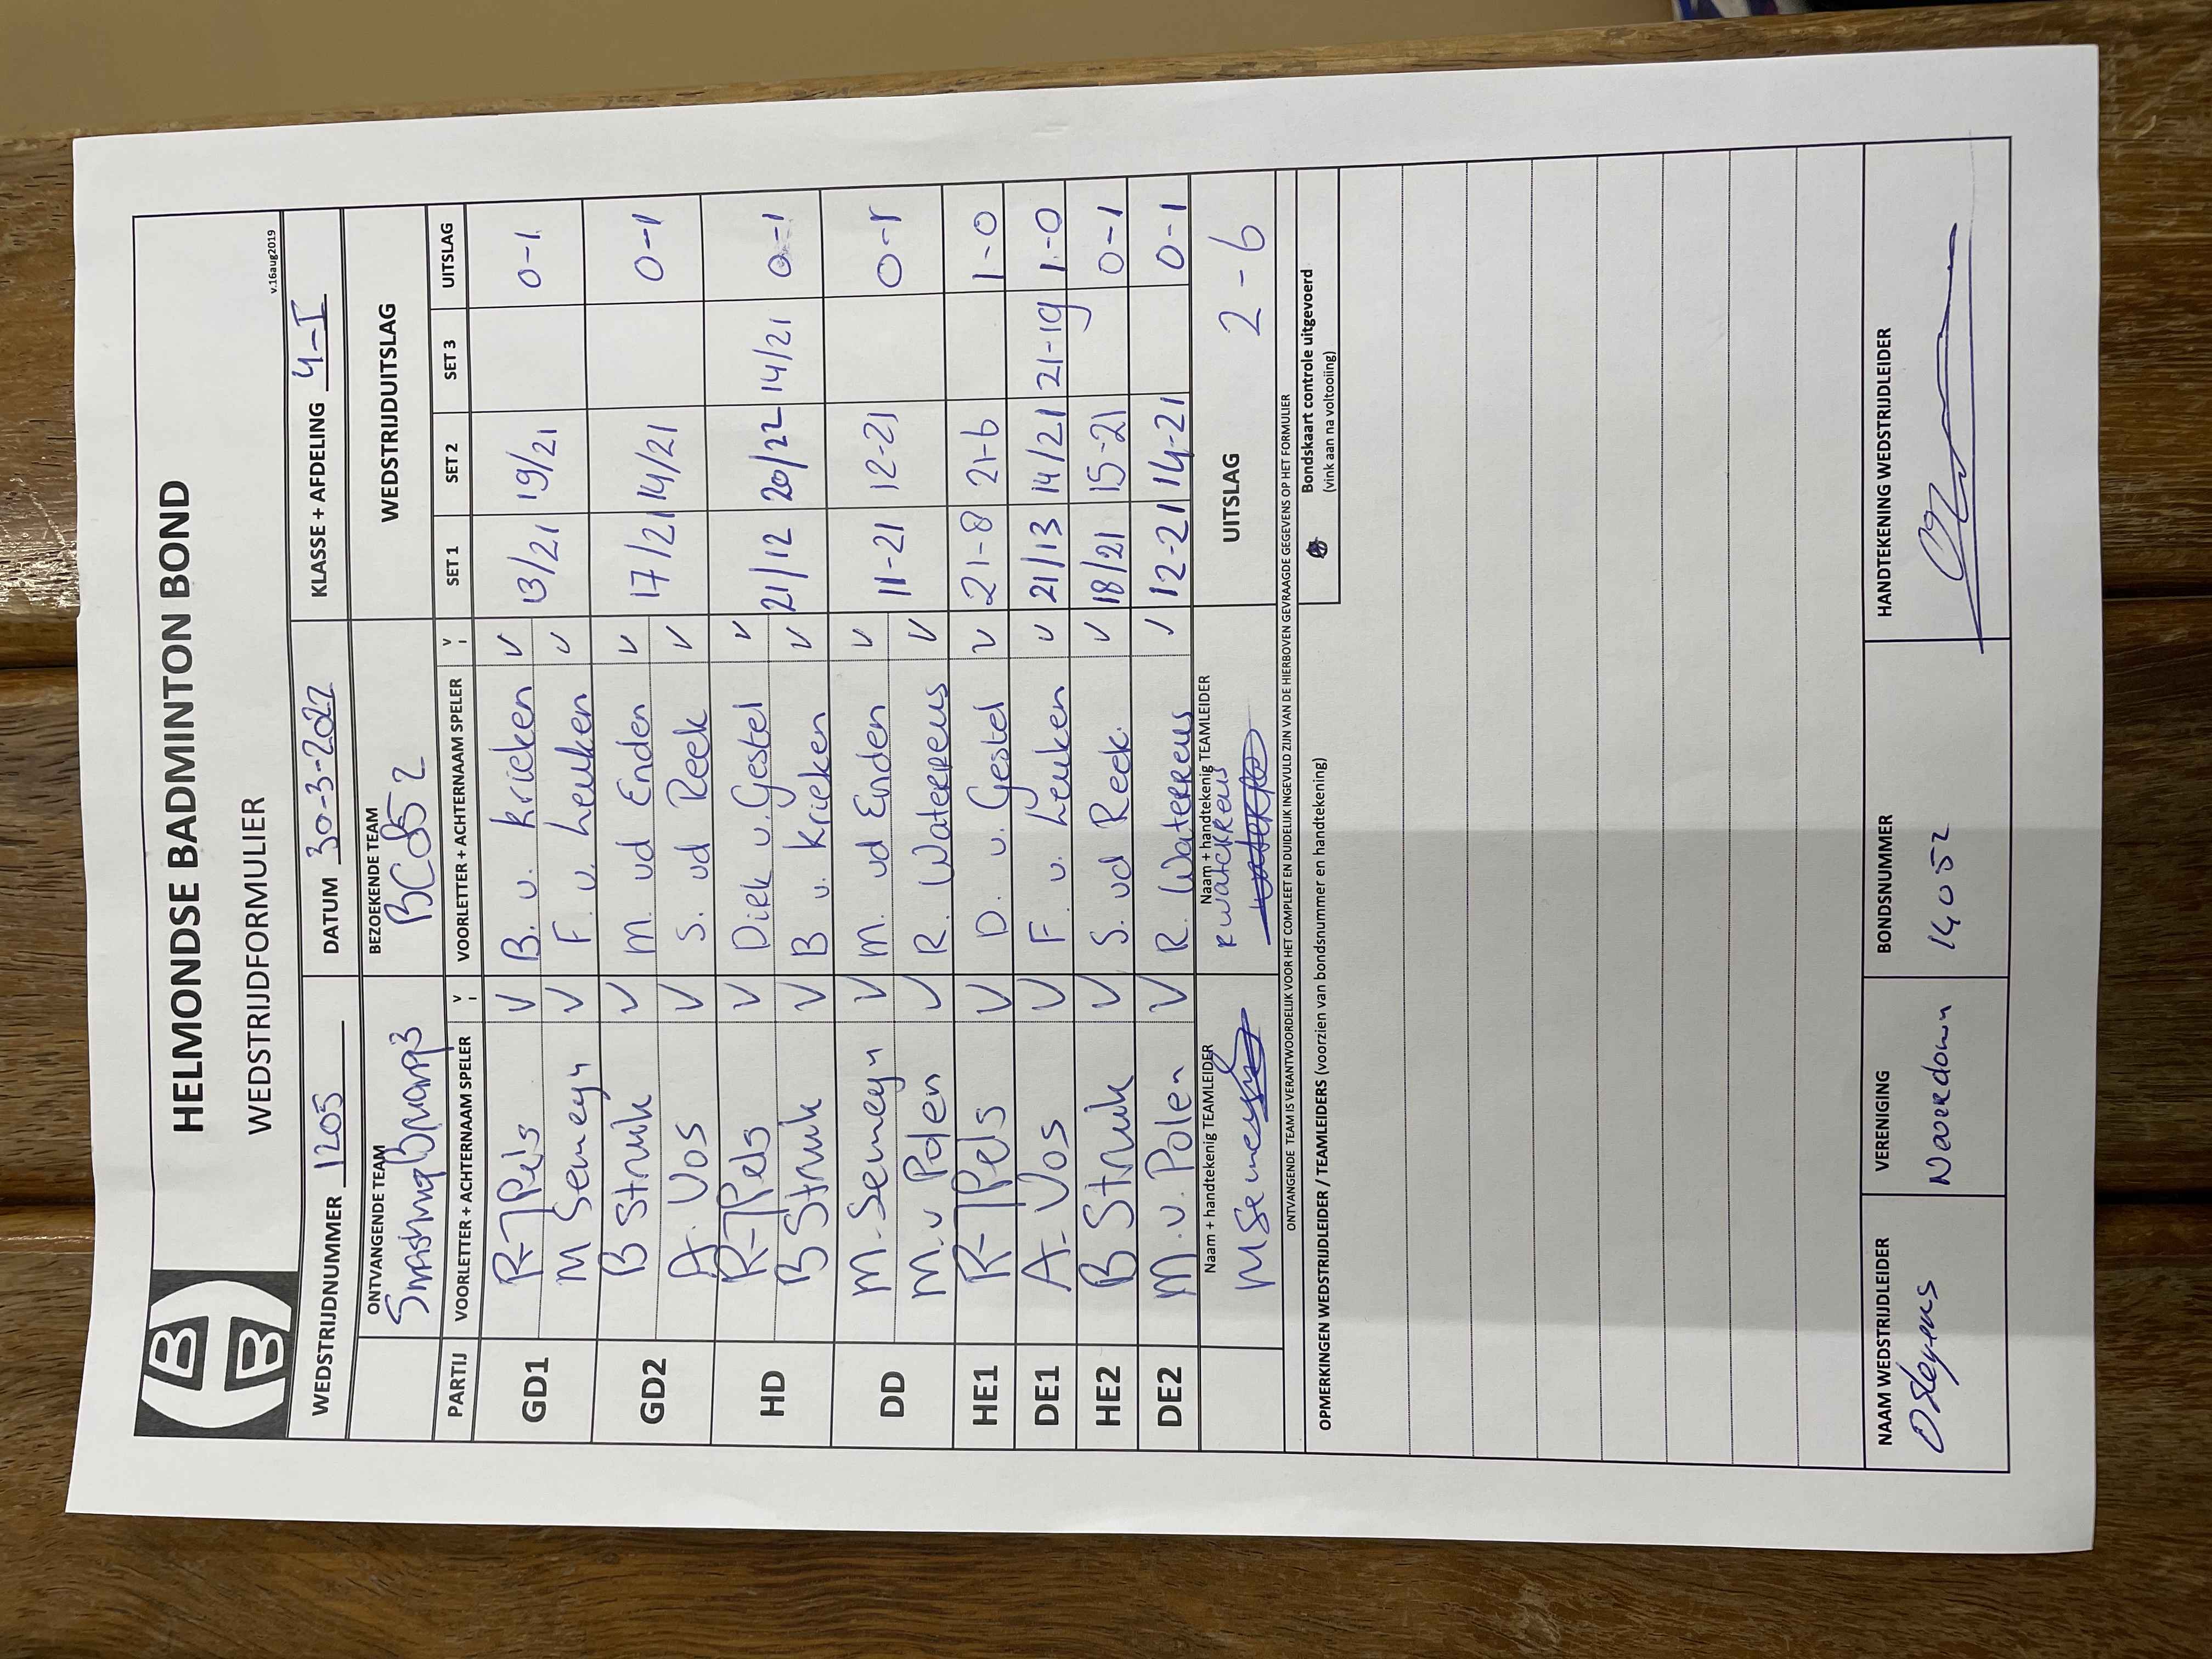 HELMONDSE BADMINTON BOND
WEDSTRIJDFORMULIER
v.16aug2019
WEDSTRIJDNUMMER 1205 DATUM 30-3-2022 KLASSE + AFDELING 4-I
ONTVANGENDE TEAM BEZOEKENDE TEAM WEDSTRIJDUITSLAG
BC85 2
PARTIJ VOORLETTER + ACHTERNAAM SPELER V VOORLETTER + ACHTERNAAM SPELER V SET 1 SET 2 SET 3 UITSLAG
GD1 R-Pels V B. v. Kricken V 13/21 19/21 0-1
M Semeyn V F. v. Leuken V
GD2 B Struik V M. vd Enden V 17/21 14/21 0-1
A. Vos V S. vd Reek V
HD R-Pels V Dirk v. Gestel V 21/12 20/22 14/21 0-1
B Struik V B v. Kricken V
DD M. Semeyn V M. vd Enden V 11-21 12-21 0-1
M. v Polen V R. Waterreus V
HE1 R-Pels V D. v. Gestel V 21-8 21-6 1-0
DE1 A- Vos V F v. Leuken V 21/13 14/21 21-19 1-0
HE2 B Struik V S. vd Reek. V 18/21 15-21 0-1
DE2 M. v. Polen V R. Waterreus V 12-21 14-21 0-1
Naam + handtekenig TEAMLEIDER Naam + handtekenig TEAMLEIDER UITSLAG 2-6
ONTVANGENDE TEAM IS VERANTWOORDELIJK VOOR HET COMPLEET EN DUIDELIJK INGEVULD ZIJN VAN DE HIERBOVEN GEVRAAGDE GEGEVENS OP HET FORMULIER
OPMERKINGEN WEDSTRIJDLEIDER / TEAMLEIDERS (voorzien van bondsnummer en handtekening)
Bondskaart controle uitgevoerd
(vink aan na voltooiing)
NAAM WEDSTRIJDLEIDER VERENIGING BONDSNUMMER HANDTEKENING WEDSTRIJDLEIDER
14052